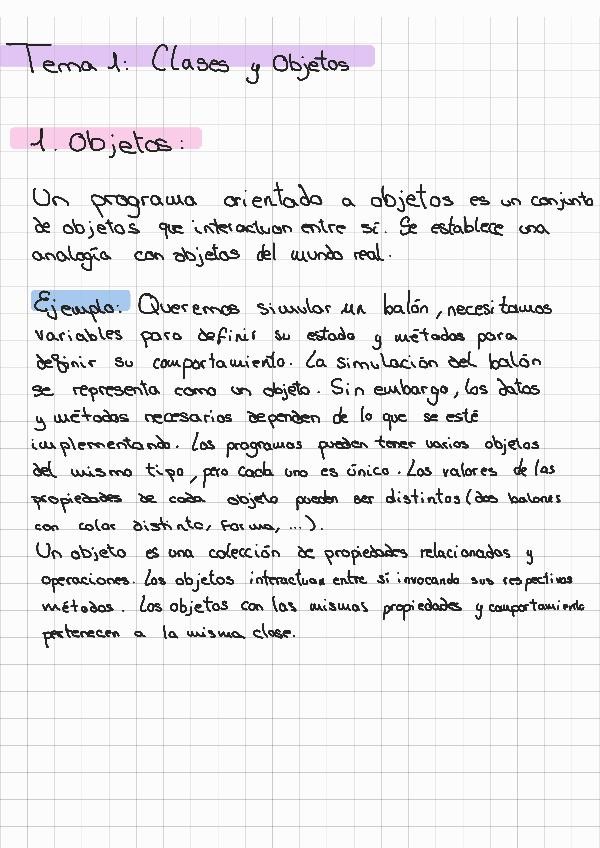 Tema 1: Clases y Objetos
1. Objetos:
Un programa orientado a objetos es un conjunto
de objetos que interactuan entre sí. Se establece una
analogía con objetos del mundo real.
Ejemplo: Queremos simular un balón, necesitamos
variables para definir su estado y métodos para
definir su comportamiento. La simulación del balón
se representa como un objeto. Sin embargo, los datos
y métodos necesarios dependen de lo que se esté
implementando. Los programas pueden tener varios objetos
del mismo tipo, pero cada uno es único. Los valores de las
propiedades de cada objeto pueden ser distintos (dos balones
con color distinto, forma, ...).
Un objeto es una colección de propiedades relacionadas y
operaciones. Los objetos interactuan entre sí invocando sus respectivos
métodos. Los objetos con las mismas propiedades y comportamiento
pertenecen a la misma clase.